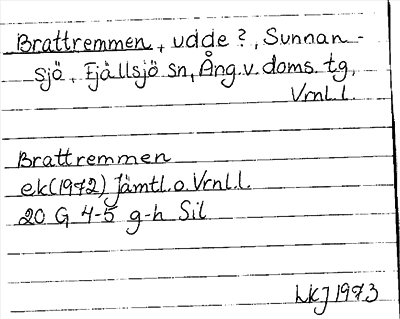 Brattremmen, udde?, Sunnan-
sjö, Fjällsjö sn, Ång. v. doms. tg,
Vrnl.l.
Brattremmen
ek(1972) Jämtl. o. Vrnl.l.
20 G 4-5 g-h Sil
LKJ 1973